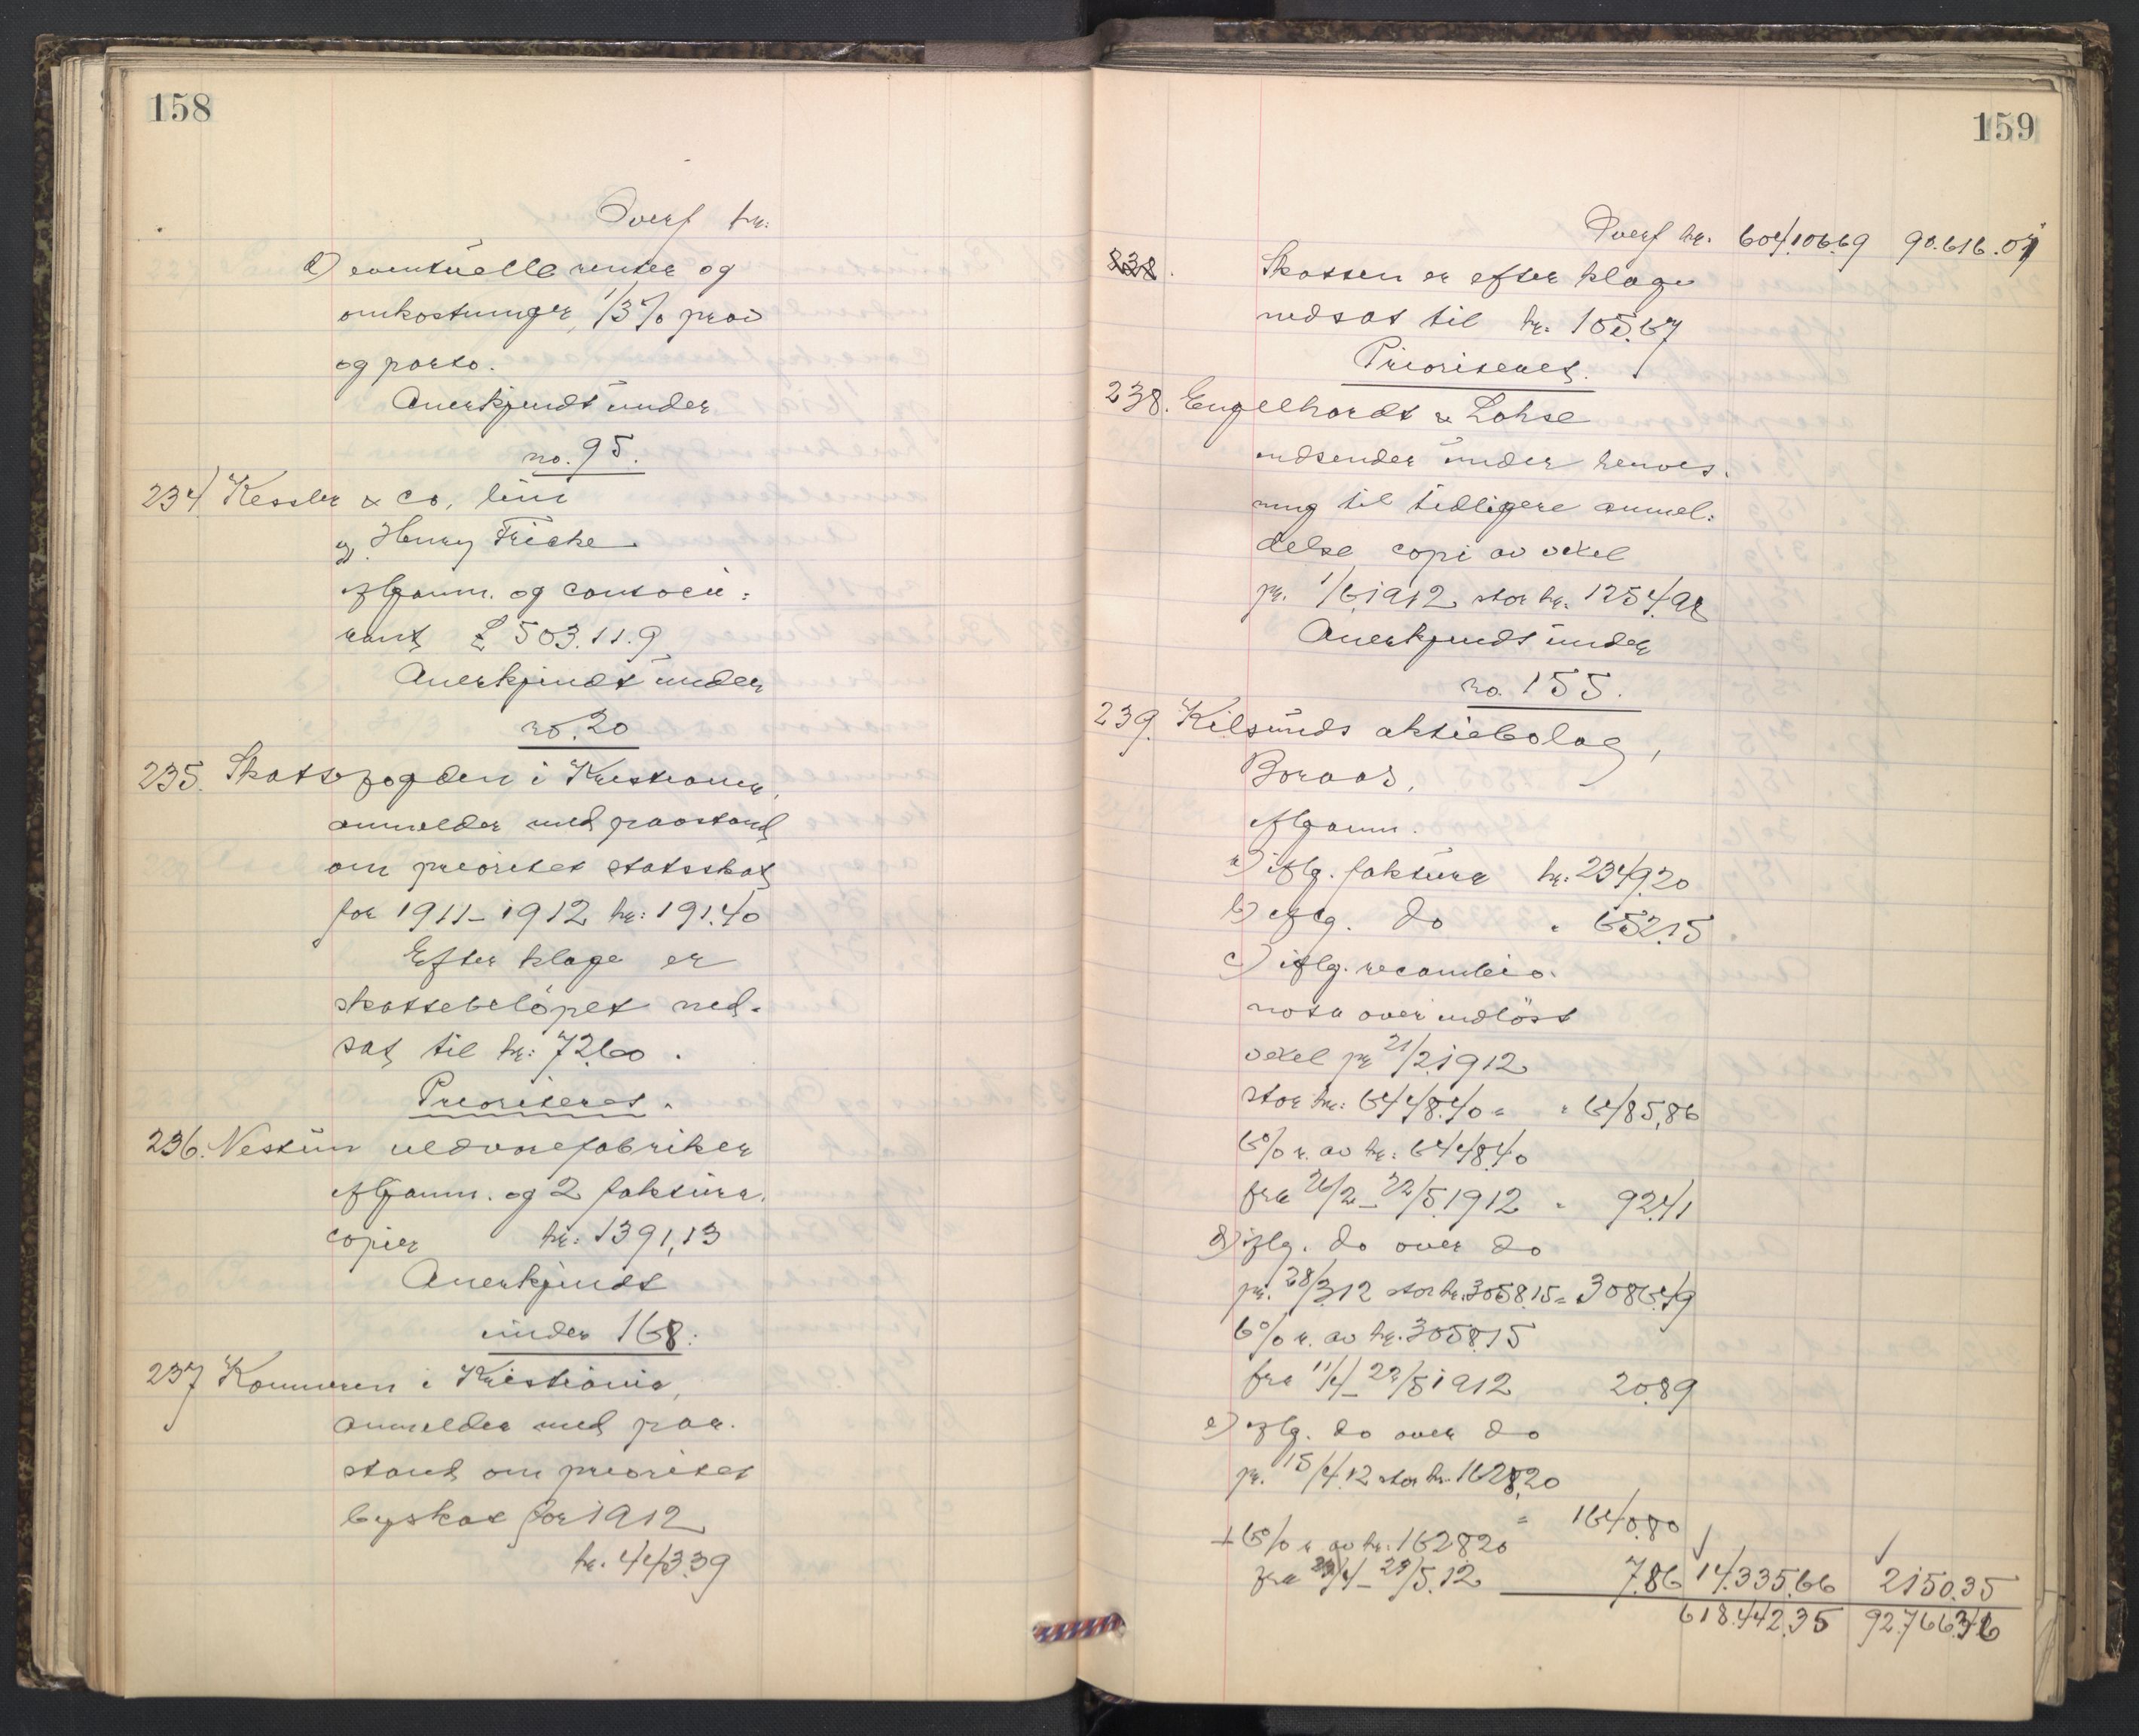 158
Overf kr.
d) eventuelle renter og
omkostninger, 1/3 % prov
og porto.
Anerkjendt under
no. 95.
234 Kessler & Co, lim
v. Henry Fricke
iflg anm. og contocu=
rant £ 503.11.9
Anerkjendt under
no. 20
235. Skattefogden i Kristiania,
anmelder med paastand
om prioritet statsskat
for 1911–1912 kr: 191.40
Efter klage er
skattebelöpet ned-
sat til kr: 72.60.
Prioriteret.
236. Nestün uldvarefabriker
iflg anm. og 2 faktura.
copier kr: 1391,13
Anerkjendt
under 168.
237 Kommunen i Kristiania,
anmelder med paa-
stand om prioritet
byskat for 1912
kr. 443.39
159
Overf kr. 604.106.69 90.616.01
238.
Skatten er efter klage
nedsat til kr. 165.67
Prioriteret.
238. Engelhardt & Lohse
indsender under henvis-
ning til tidligere anmel=
delse copi av vexel
pr. 1/6.1912 stor kr. 1254.92
Anerkjendt under
no. 155.
239. Kilsunds aktiebolag,
Boraas,
iflg anm.
a) iflg. faktura kr: 2349.20
b) iflg. do " 652.15
c) iflg. recambio-
nota over indlöst
vexel pr 21/2.1912
stor kr: 6448.40 = " 6485,86
6% r. av kr: 6448.40
fra 21/2–22/5.1912 " 92.41
d) iflg. do over do
pr. 28/3.12 stor kr. 3058.15 = 3086.49
6% r. av kr. 3058.15
fra 11/4–22/5 1912 20.89
e) iflg. do over do
pr. 15/4.12 stor kr. 1628,20
= 1640.80
+ 6% r av kr: 1628.20
fra 22/4–22/5.12 7.86 14.335.66 2150.35
618.442.35 92.766.36